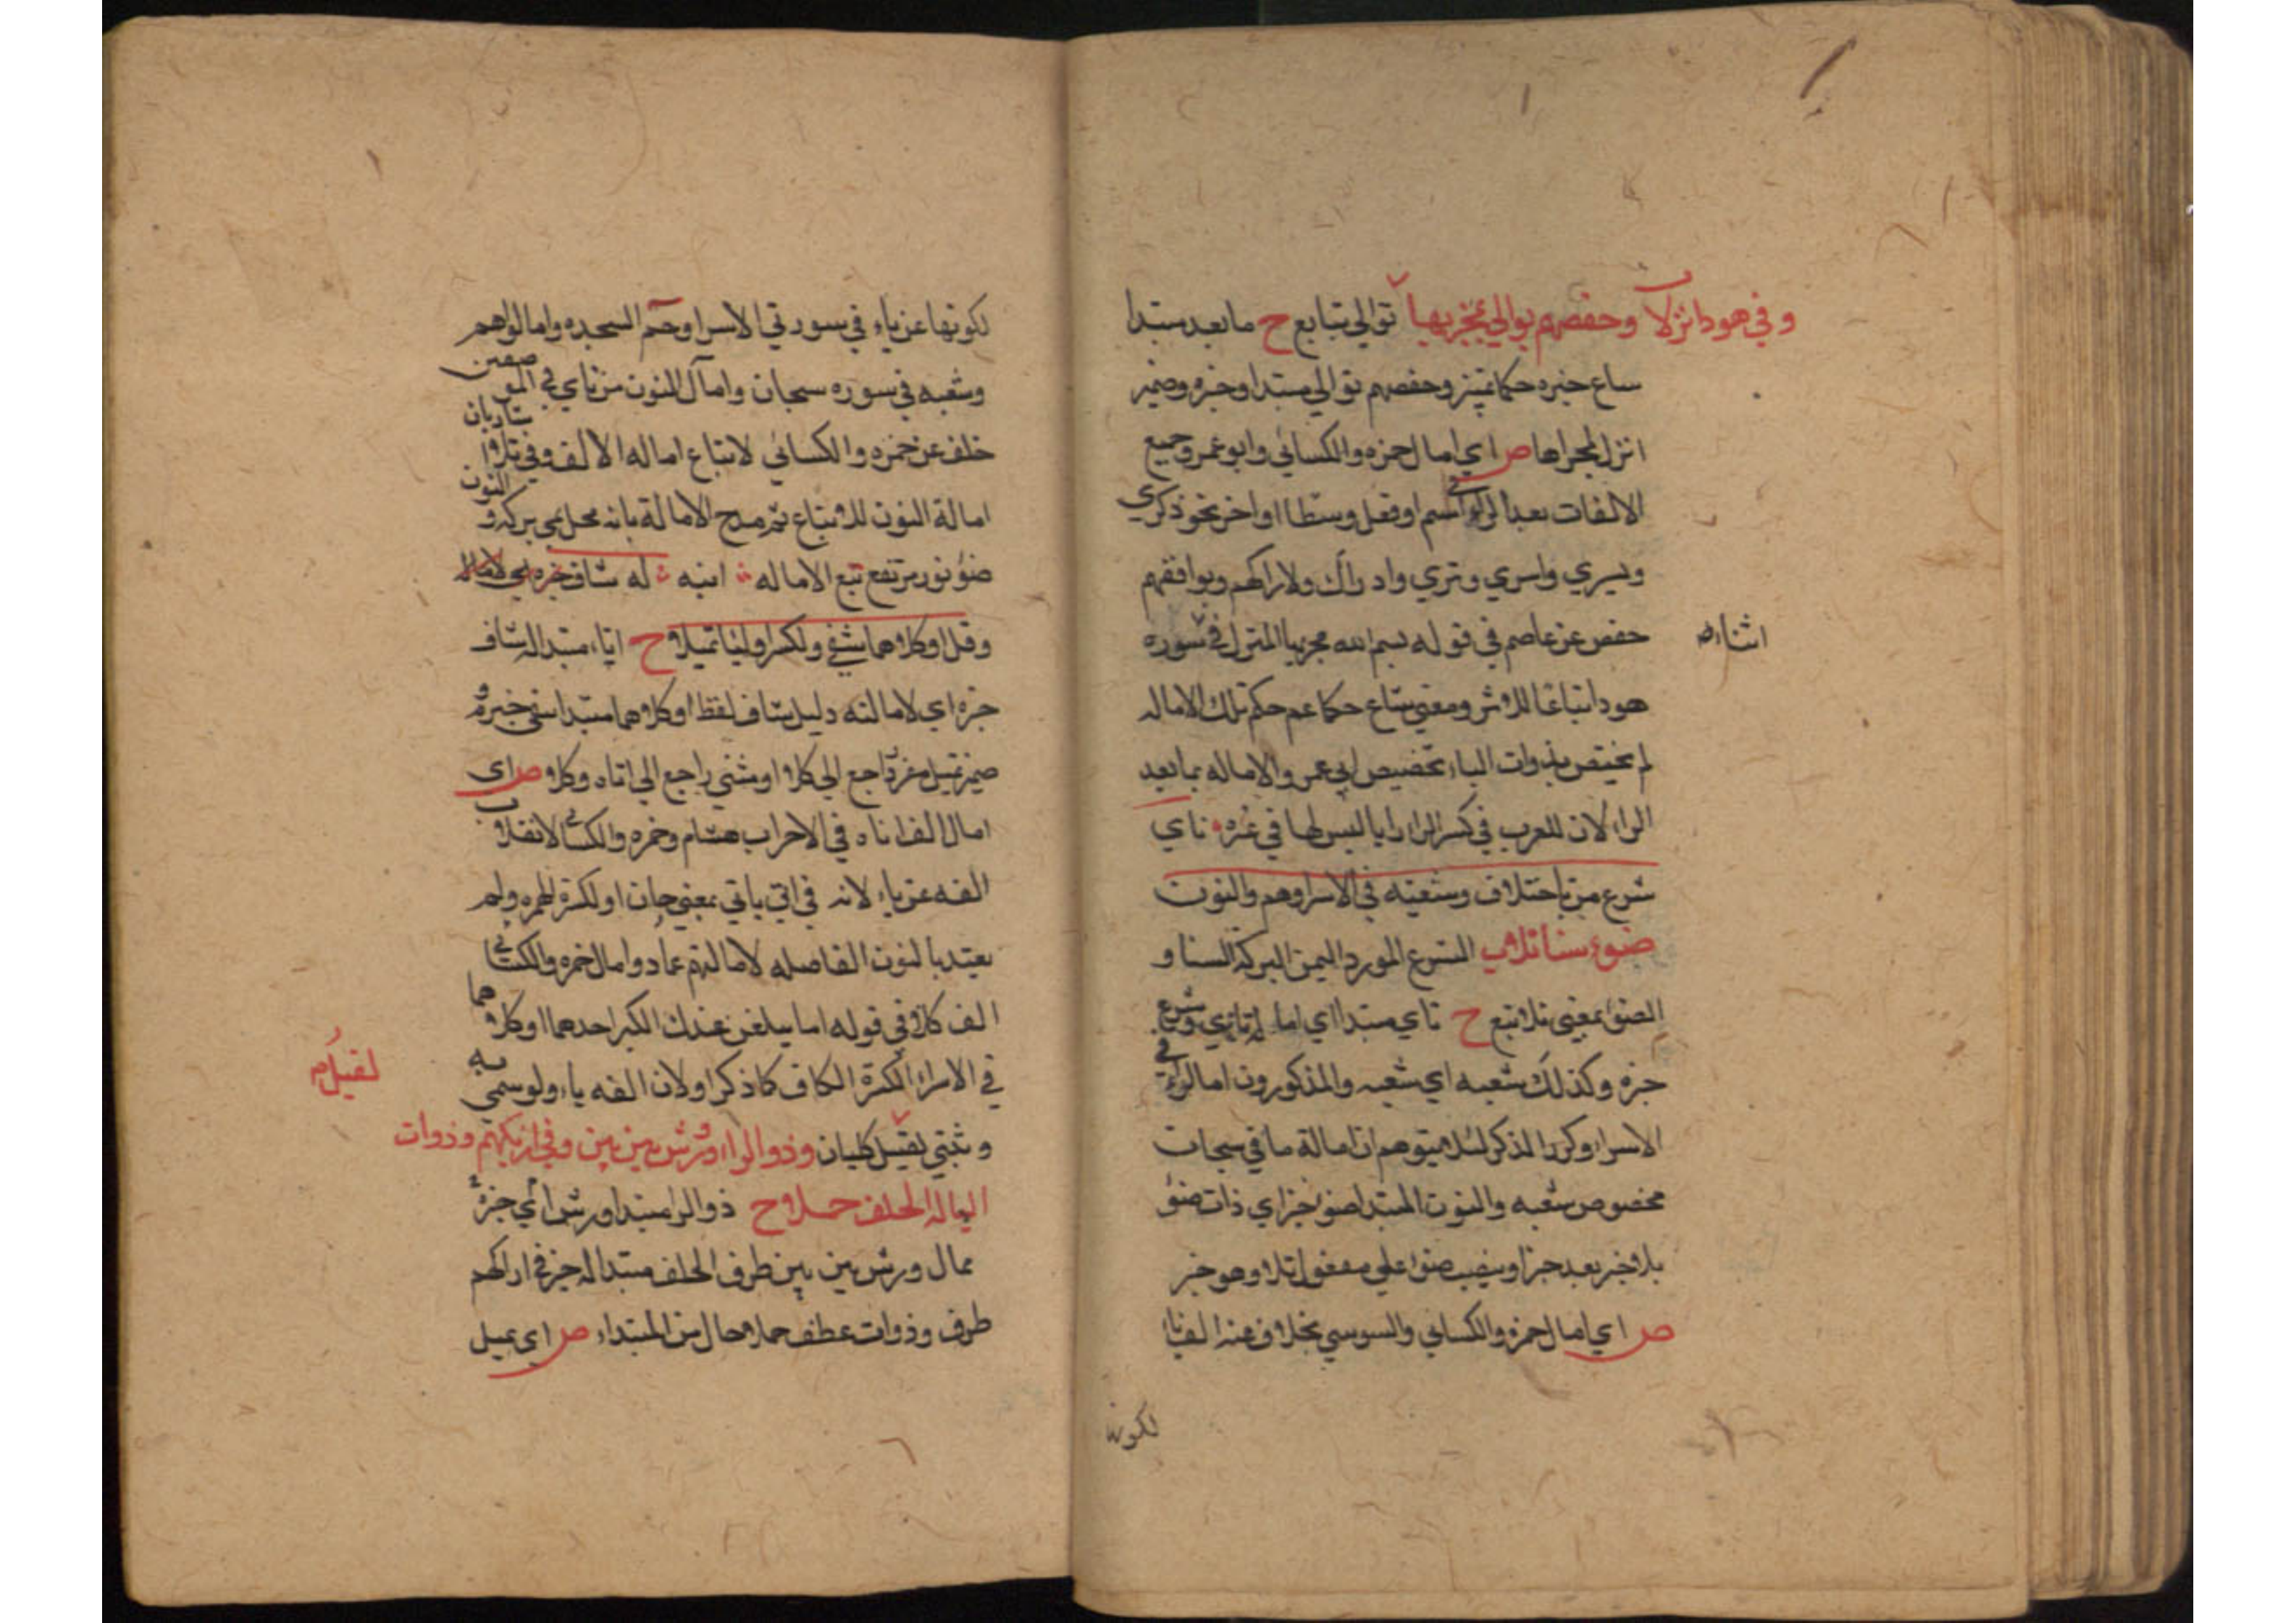 وفي هود انزلا وحفصهم يوالي بمجريها توالي يتابع ح ما بعد مبتدا
شاع خبره حكما تميز وحفصهم توالي مبتدا وخبره وضمير
انزل لمجراها ص اي امال حمزه والكسائي وابو عمرو جميع
الالفات بعد الراء في اسم او فعل وسطا او اخر نحو ذكري
ويسري واسري وتري وادراك ولا اراكهم ويوافقهم
حفص عن عاصم في قوله بسم الله مجريها المنزل في سوره
اثناء
هود اتباعا للاثر ومعني شاع حكما عم حكم تلك الاماله
لم يختص بذوات الياء تخصيص ابي عمرو الاماله بما بعد
الراء لان للعرب في كسر الراء رايا ليس لها في غيره ناي
شرع من باختلاف وشعبه في الاسرا وهم والنون
ضوء سنا تلا الشرع المورد اليمن البركه السنا و
الضوء بمعني تلا تبع ح ناي مبتدا اي اماله ناي وشرع
خبره وكذلك شعبه اي شعبه والمذكورون امالوا في
الاسراء وكرر الذكر لئلا يتوهم ان امالة ما في سبحان
مخصوص شعبه والنون المبتدا ضوء خبر اي ذات ضوء
بلا خبر بعد خبر او ينصب ضوا علي مفعول تلا وهو خبر
ص اي امال حمزه والكسائي والسوسي بخلاف عنه الف ناا
لكونها
لكونها عن ياء في سورتي الاسرا وحم السجده وامالواهم
وشعبه في سوره سبحان وامال النون من ناي في الموضعين
خلف عن حمزه والكسائي لاتباع اماله الالف وفي تلا اشاربان
امالة النون للاتباع ثم مدح الامالة بانه محل يمن بركه و النون
ضوء نور مرتفع تبع الاماله اينه له شاف خبره اي لاماله
وقل او كلاهما شفي ولكسر او لياء تميلا ح اناه مبتدا له شاف
خبره اي لامالته دليل شاف لفظ او كلاهما مبتدا شفي خبره و
ضمير تميل مفرد راجع الي كلا او مثني راجع الي اناه وكلا ص اي
امال الف اناه في الاحزاب هشام وحمزه والكسائي لانقلاب
الفه عن ياء لانه في اني ياني بمعني حان او لكسرة الهمزه ولم
يعتد بالنون الفاصله لامالتهم عماد وامال حمزه والكسائي
الف كلا في قوله اما يبلغن عندك الكبر احدهما او كلاهما
في الاسراء لكسرة الكاف كما ذكر او لان الفه ياء ولو سمي به
وثني لقيل كليان وذو الراء ورش بين بين وفي اراكهم وذوات
لقيل
اليا له الخلف جملا ح ذو الرا مبتدا ورش اي خبره
ممال ورش بين بين ظرف الخلف مبتدا له خبر في اراكهم
ظرف وذوات عطف جملا حال من المبتداء ص اي يميل